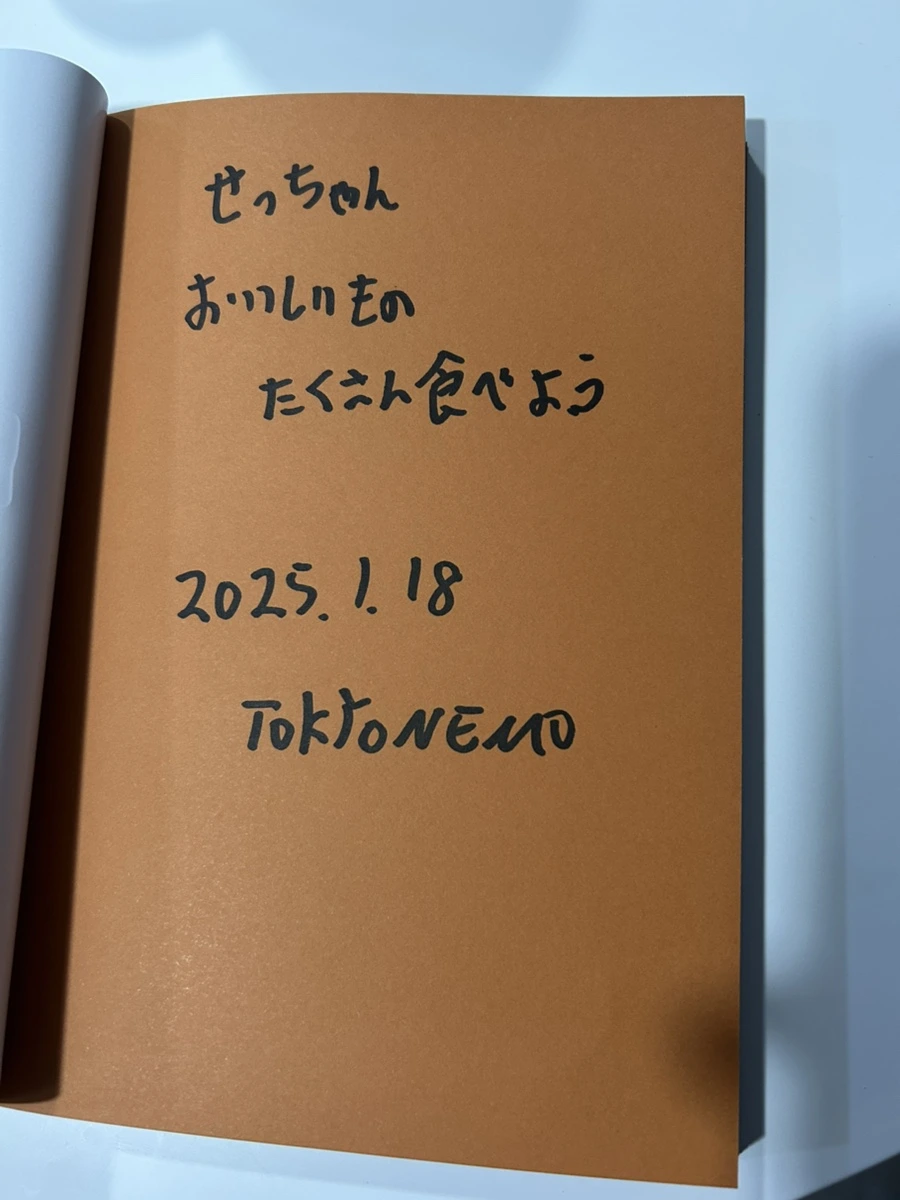 せっちゃん
おいしいもの
たくさん食べよう
2025.1.18
TOKYONEMO